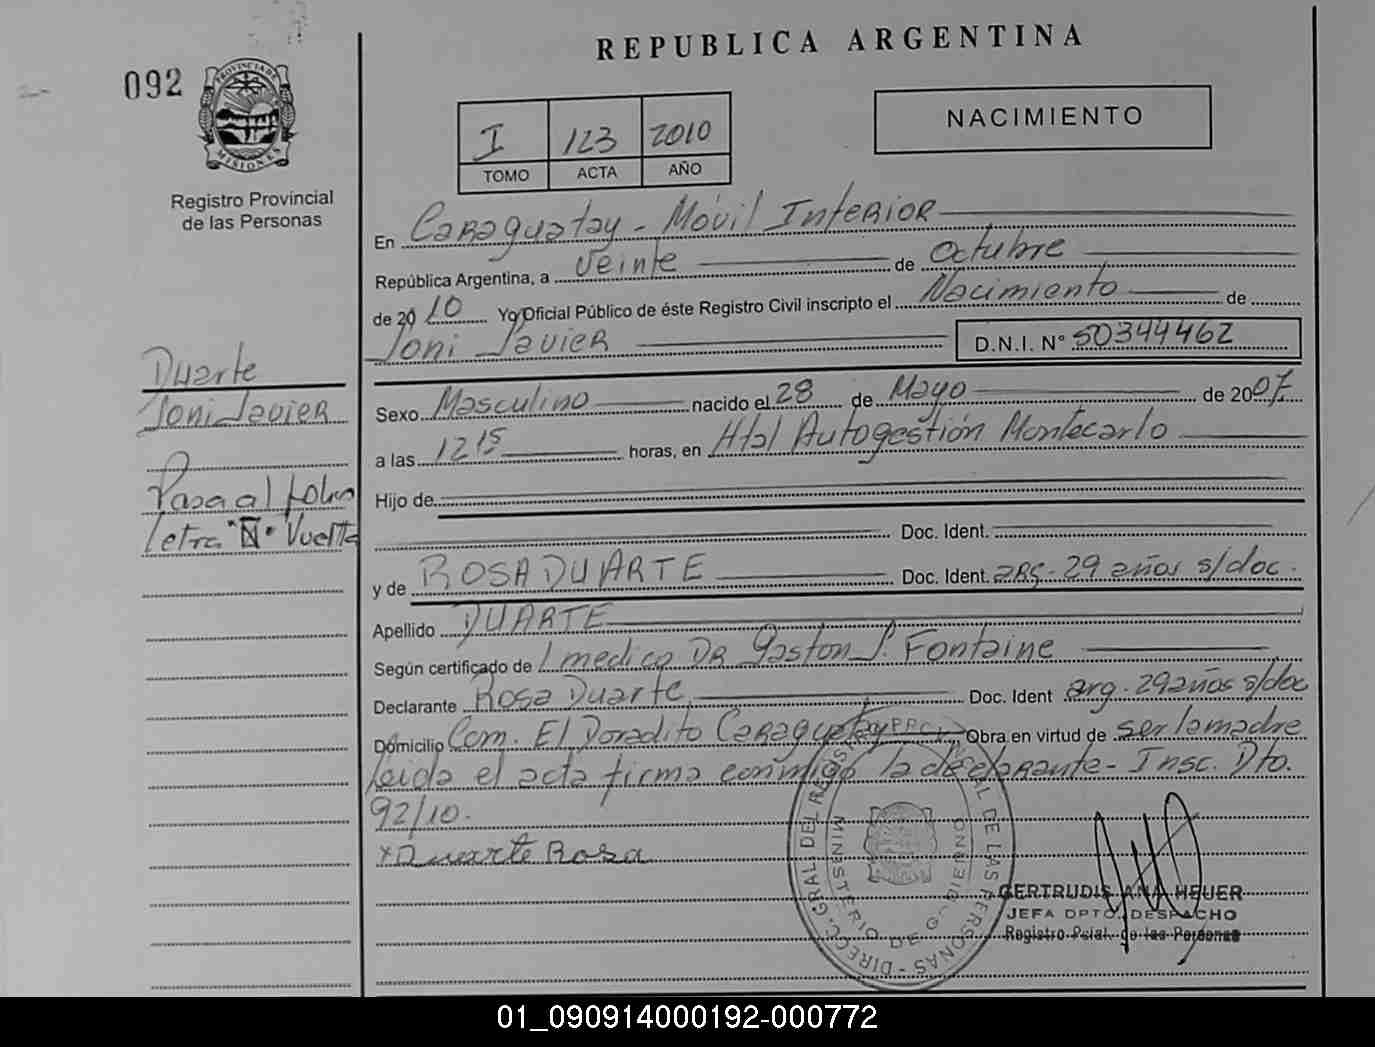 REPUBLICA ARGENTINA
092
PROVINCIA DE MISIONES
Registro Provincial
de las Personas
I 123 2010
TOMO ACTA AÑO
NACIMIENTO
En Caraguatay - Móvil Interior
República Argentina, a Veinte de Octubre
de 2010 Yo Oficial Público de éste Registro Civil inscripto el Nacimiento de
Joni Javier D.N.I. N° 50344462
Duarte
Joni Javier
Pasa al folio
letra "N" Vuelta
Sexo Masculino nacido el 28 de Mayo de 2007.
a las 12 15 horas, en Htal Autogestión Montecarlo
Hijo de
Doc. Ident.
y de ROSA DUARTE Doc. Ident. arg. 29 años s/doc.
Apellido DUARTE
Según certificado de l medico DR Gaston J. Fontaine
Declarante Rosa Duarte Doc. Ident arg. 29 años s/doc
Domicilio Com. El Doradito Caraguatay Obra en virtud de ser la madre
leida el acta firma conmigo la declarante - Insc. Dto.
92/10.
x Duarte Rosa
DIRECC. GRAL. DEL REGISTRO PROVINCIAL DE LAS PERSONAS
MINISTERIO DE GOBIERNO
GERTRUDIS ANA HEUER
JEFA DPTO. DESPACHO
Registro Pcial. de las Personas
01_090914000192-000772